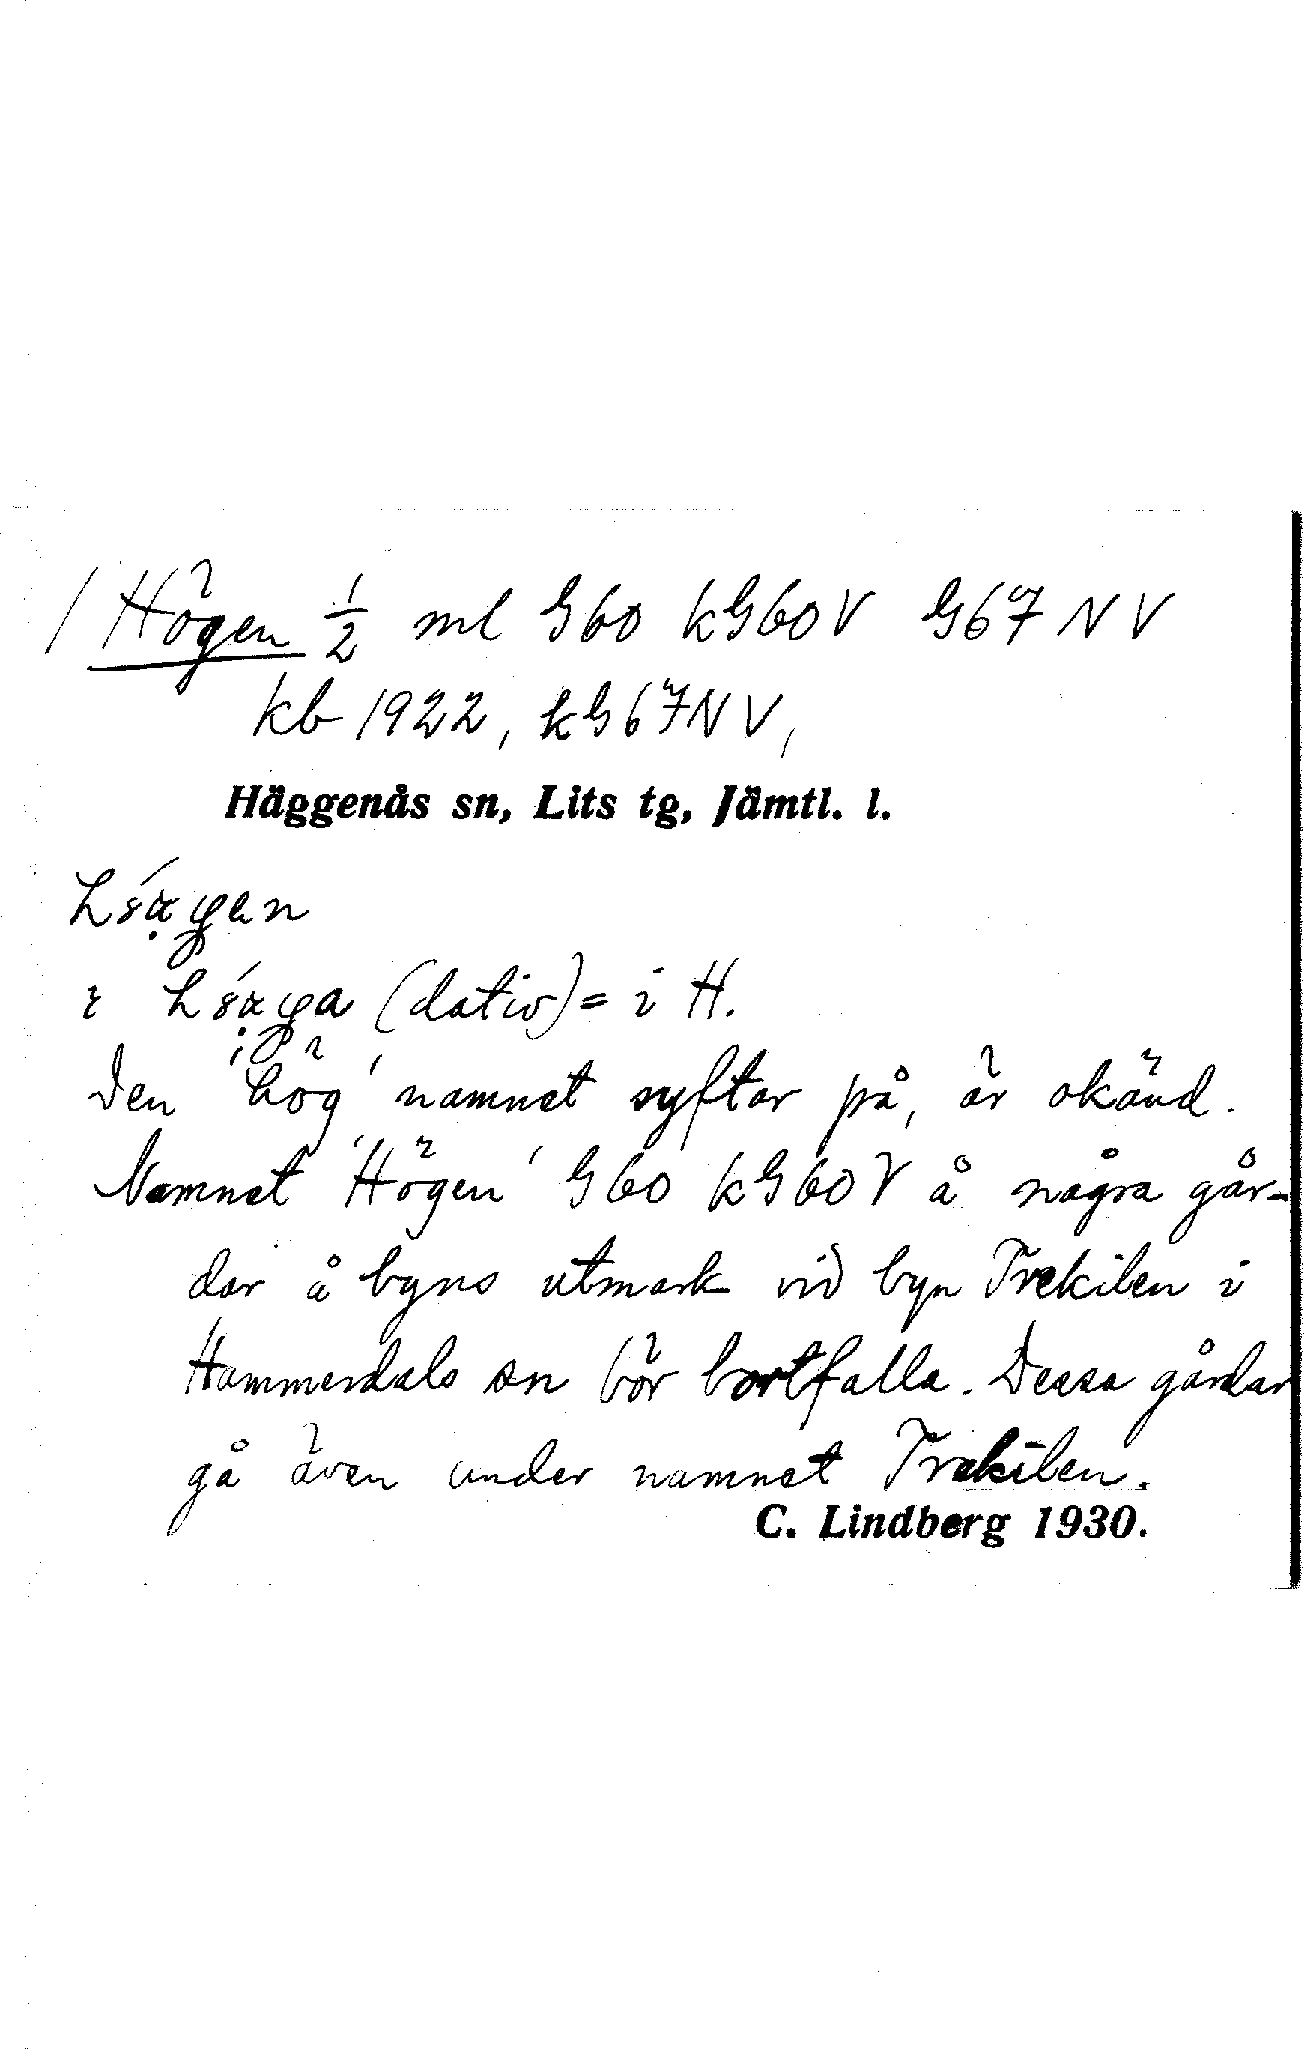 / Högen 1/2 ml G60 kG60V G67NV
kb 1922, kG67NV,
Häggenås sn, Lits tg, Jämtl. l.
(dativ) = i H.
Den 'hög' namnet syftar på, är okänd.
Namnet 'Högen' G60 kG60V å några går-
dar å byns utmark vid byn Trekilen i
Hammerdals sn bör bortfalla. Dessa gårdar
gå även under namnet Trekilen.
C. Lindberg 1930.